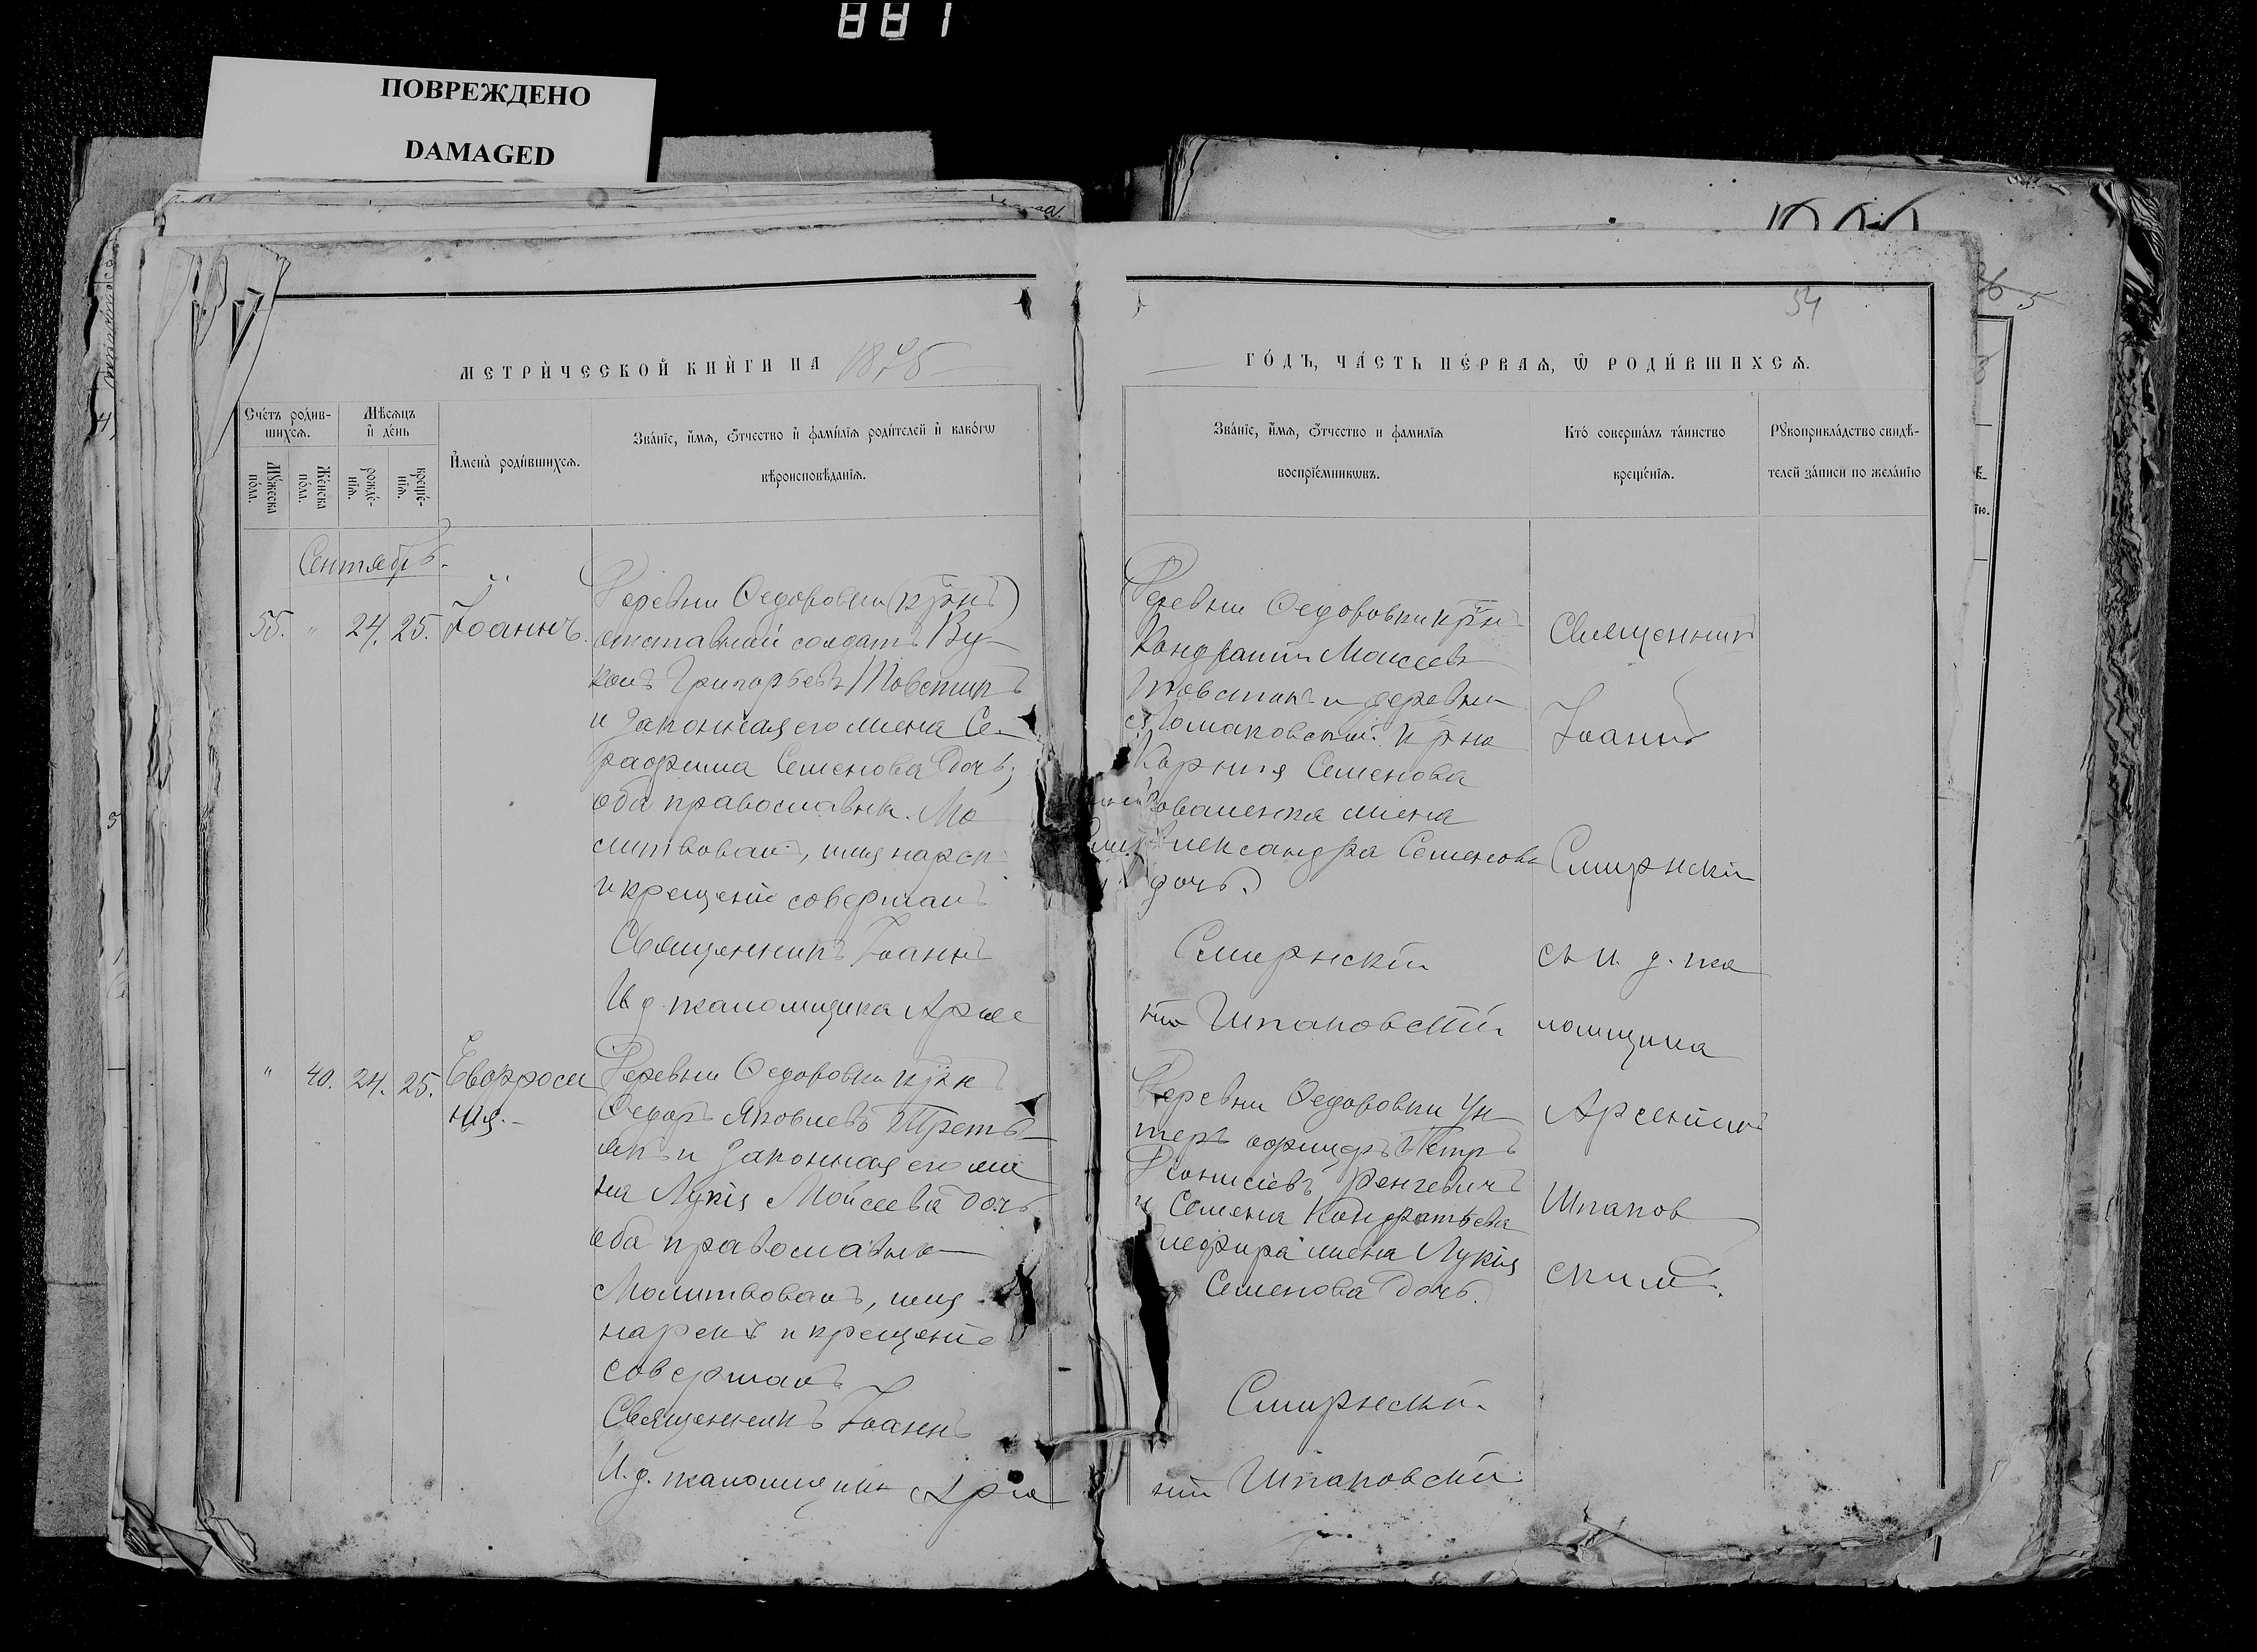 881
ПОВРЕЖДЕНО
DAMAGED
54
5
МЕТРИ́ЧЕСКОЙ КНИ́ГИ НА 1875
ГО́ДЪ, ЧА́СТЬ ПЕ́РВАѦ, Ѿ РОДИ́ВШИХСѦ.
Счетъ роди́в-
шихсѧ.
Мѣсѧцъ
и҆ де́нь
Мꙋ́жеска
по́ла.
Же́нска
по́ла.
рожде́-
нїѧ.
креще́-
нїѧ.
И҆мена̀ роди́вшихсѧ.
Зва́нїе, и҆́мѧ, ѻ҆́тчество и҆ фамѝлїѧ роди́телей и҆ како́гѡ
вѣроисповѣ́данїѧ.
Зва́нїе, и҆́мѧ, ѻ҆́тчество и фамилїѧ
воспрїе́мникѡвъ.
Кто̀ соверша́лъ та́инство
креще́нїѧ.
Рꙋкоприкла́дство свидѣ́-
телей за́писи по жела́нїю
Сентябрь.
55. " 24. 25. Іоаннъ.
Деревни Ѳедоровки (крнъ)
отставной солдатъ Ву-
колъ Григорьевъ Товстикъ
и законная его жена Се-
рафима Семенова дочь,
оба православны. Мо
литвовалъ, имя нарек
и крещеніе совершалъ
Священникъ Іоаннъ
И д. псаломщика Арсе
Деревни Ѳедоровки крн
Кондратій Моисеевъ
Товстикъ и деревни
крна
Корнилія Семенова
Коваленка жена
Александра Семенова
дочь.
Смирнскій
ній Шпаковскій
Священник
Іоаннъ
Смирнскій
съ и. д. пса
ломщика
Арсеніемъ
Шпаков
скимъ.
" 40. 24. 25. Евфроси
нія.
Деревни Ѳедоровки крнъ
Ѳедоръ Яковлевъ Треть-
якъ и законная его же
на Лукія Мойсеева дочь
оба православные
Молитвовалъ, имя
нарекъ и крещеніе
совершалъ
Священникъ Іоаннъ
И. д. псаломщика Арсе
Деревни Ѳедоровки Ун
теръ офицеръ Петръ
Діонисіевъ
и Семена Кондратьева
жена Лукія
Семенова дочь.
Смирнскій
ній Шпаковскій